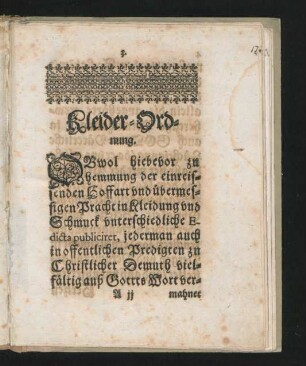 3.
Kleider-Ord-
nung.
OBwol hiebevor zu
hemmung der einreis-
senden Hoffart vnd übermes-
sigen Pracht in Kleidung vnd
Schmuck vnterschiedliche E-
dicta publiciret, jederman auch
in offentlichen Predigten zu
Christlicher Demuth viel-
fältig auß Gottes Wort ver-
A ij mahnet